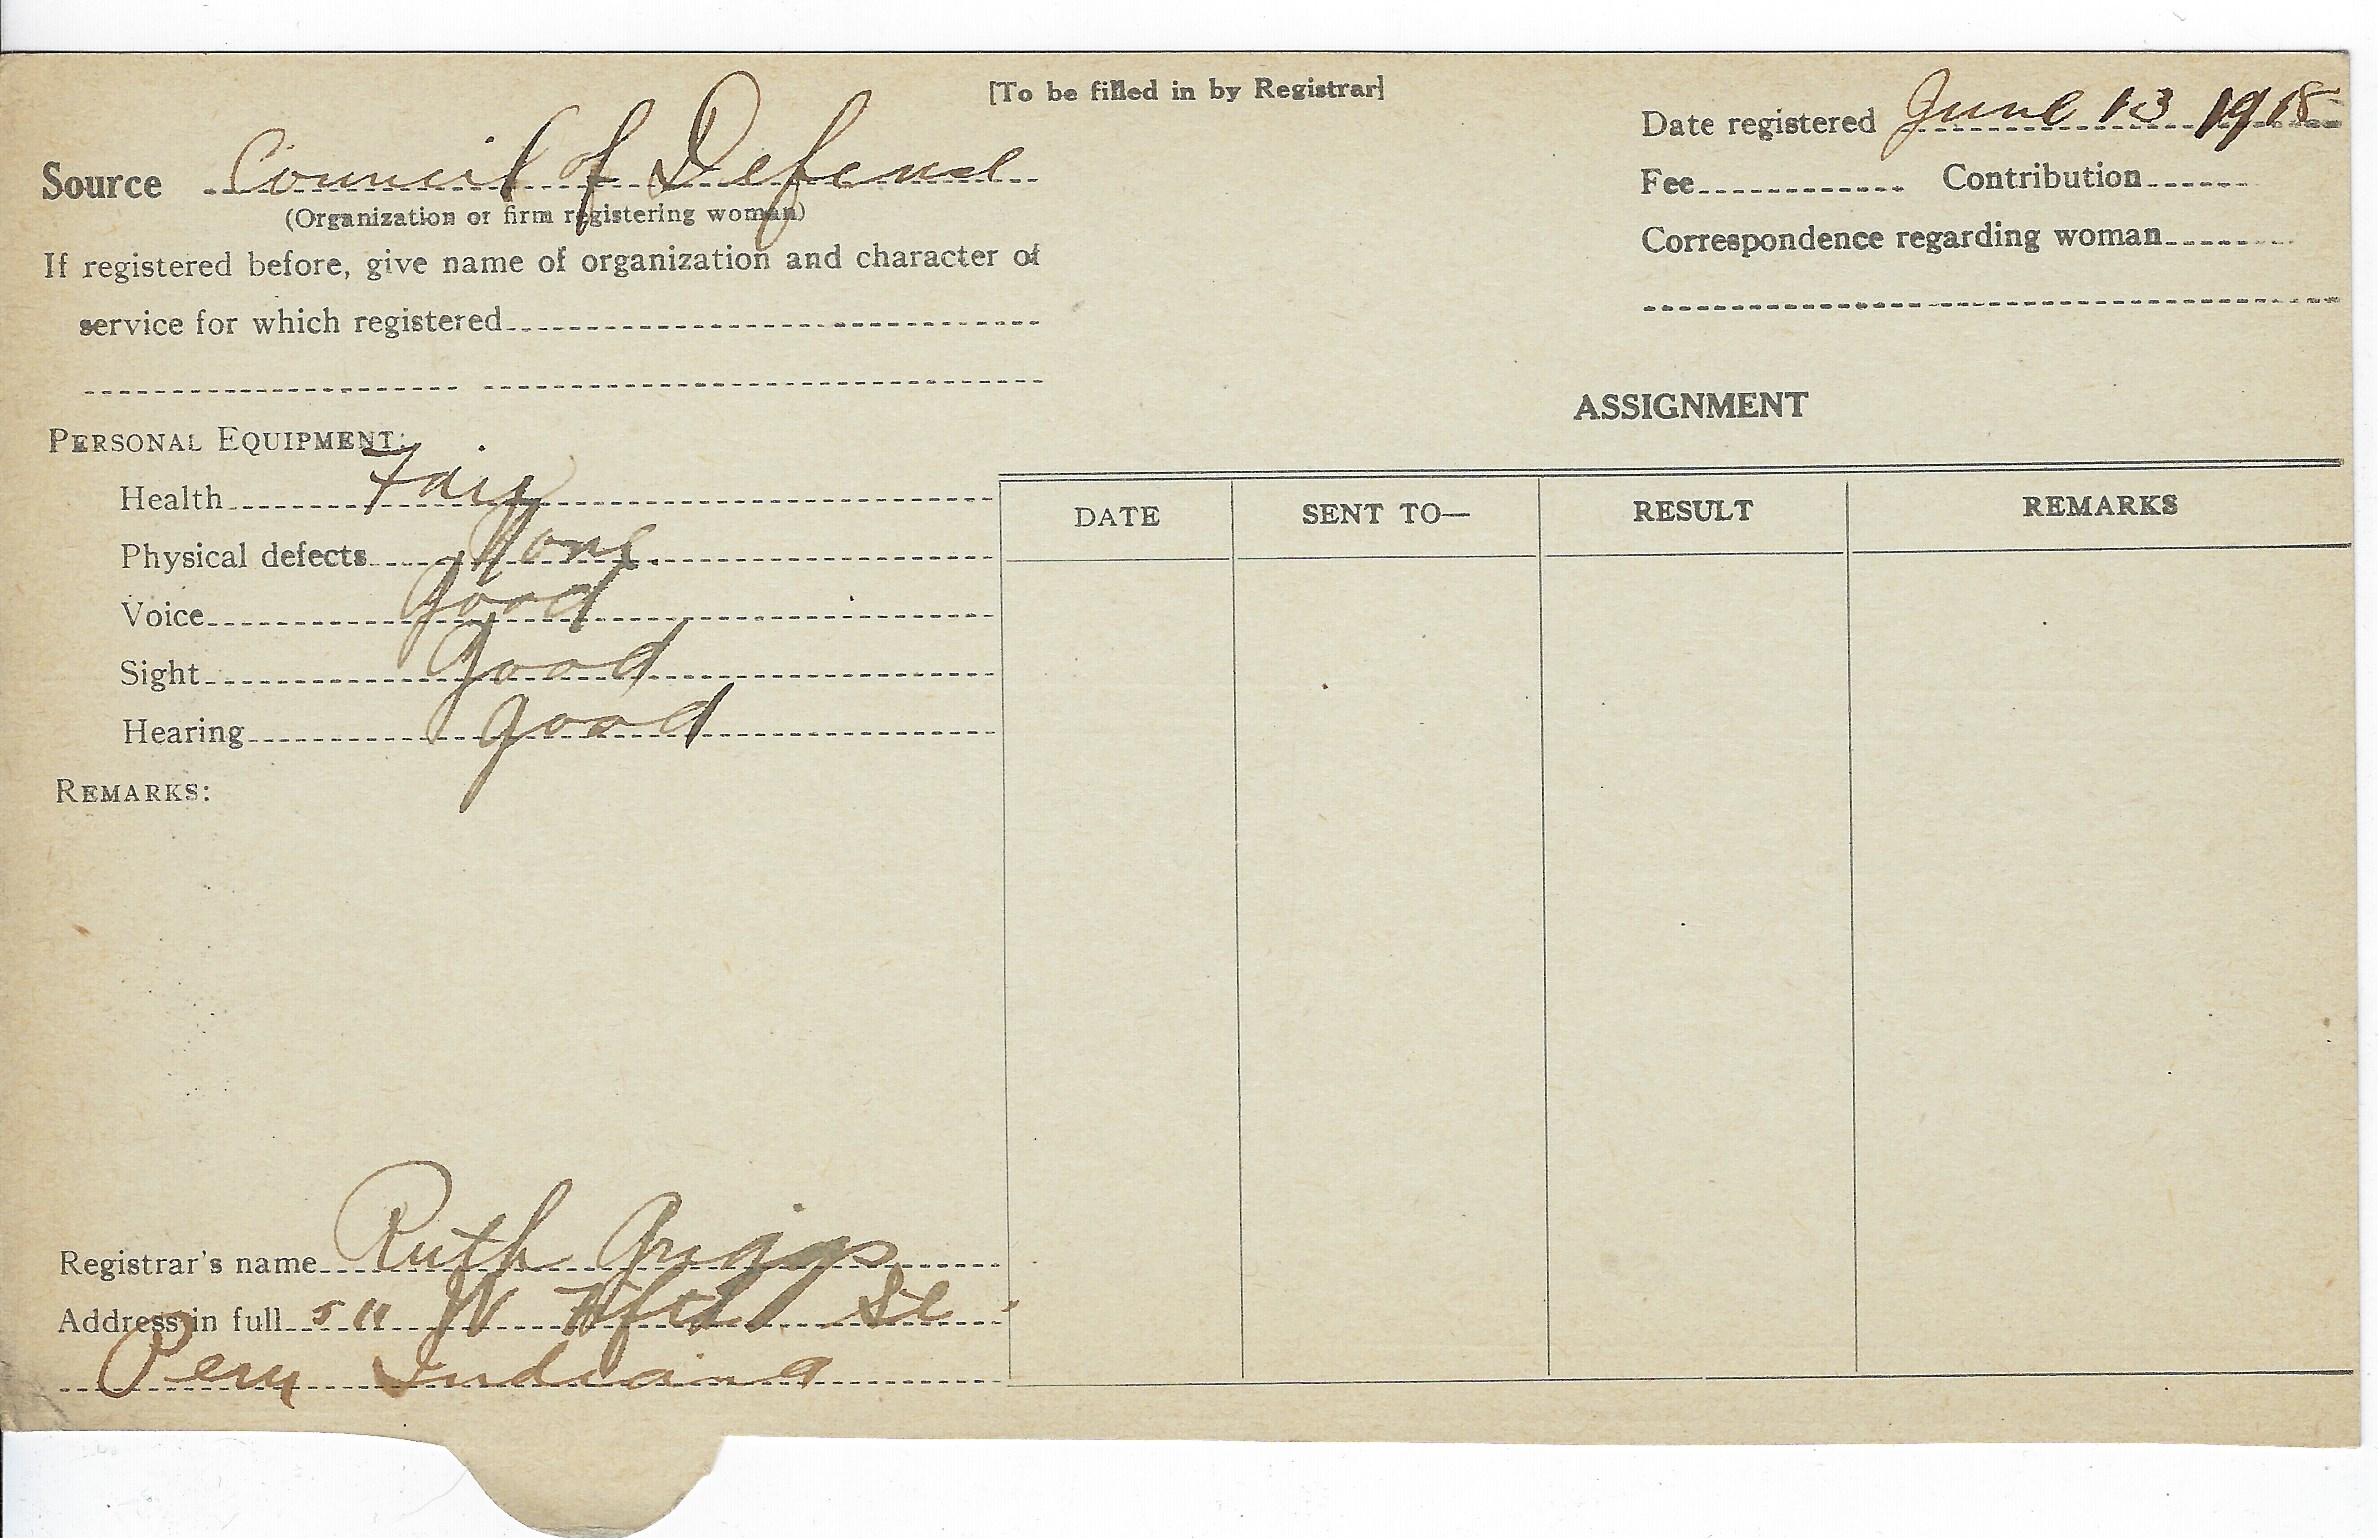 [To be filled in by Registrar]
Source Council of Defense
(Organization or firm registering woman)
If registered before, give name of organization and character of
service for which registered
Date registered June 13 1918
Fee Contribution
Correspondence regarding woman
PERSONAL EQUIPMENT:
Health Fair
Physical defects None
Voice Good
Sight Good
Hearing good
REMARKS:
Registrar's name Ruth Griggs
Address in full 511 W Fifth St
Peru Indiana
ASSIGNMENT
DATE SENT TO— RESULT REMARKS